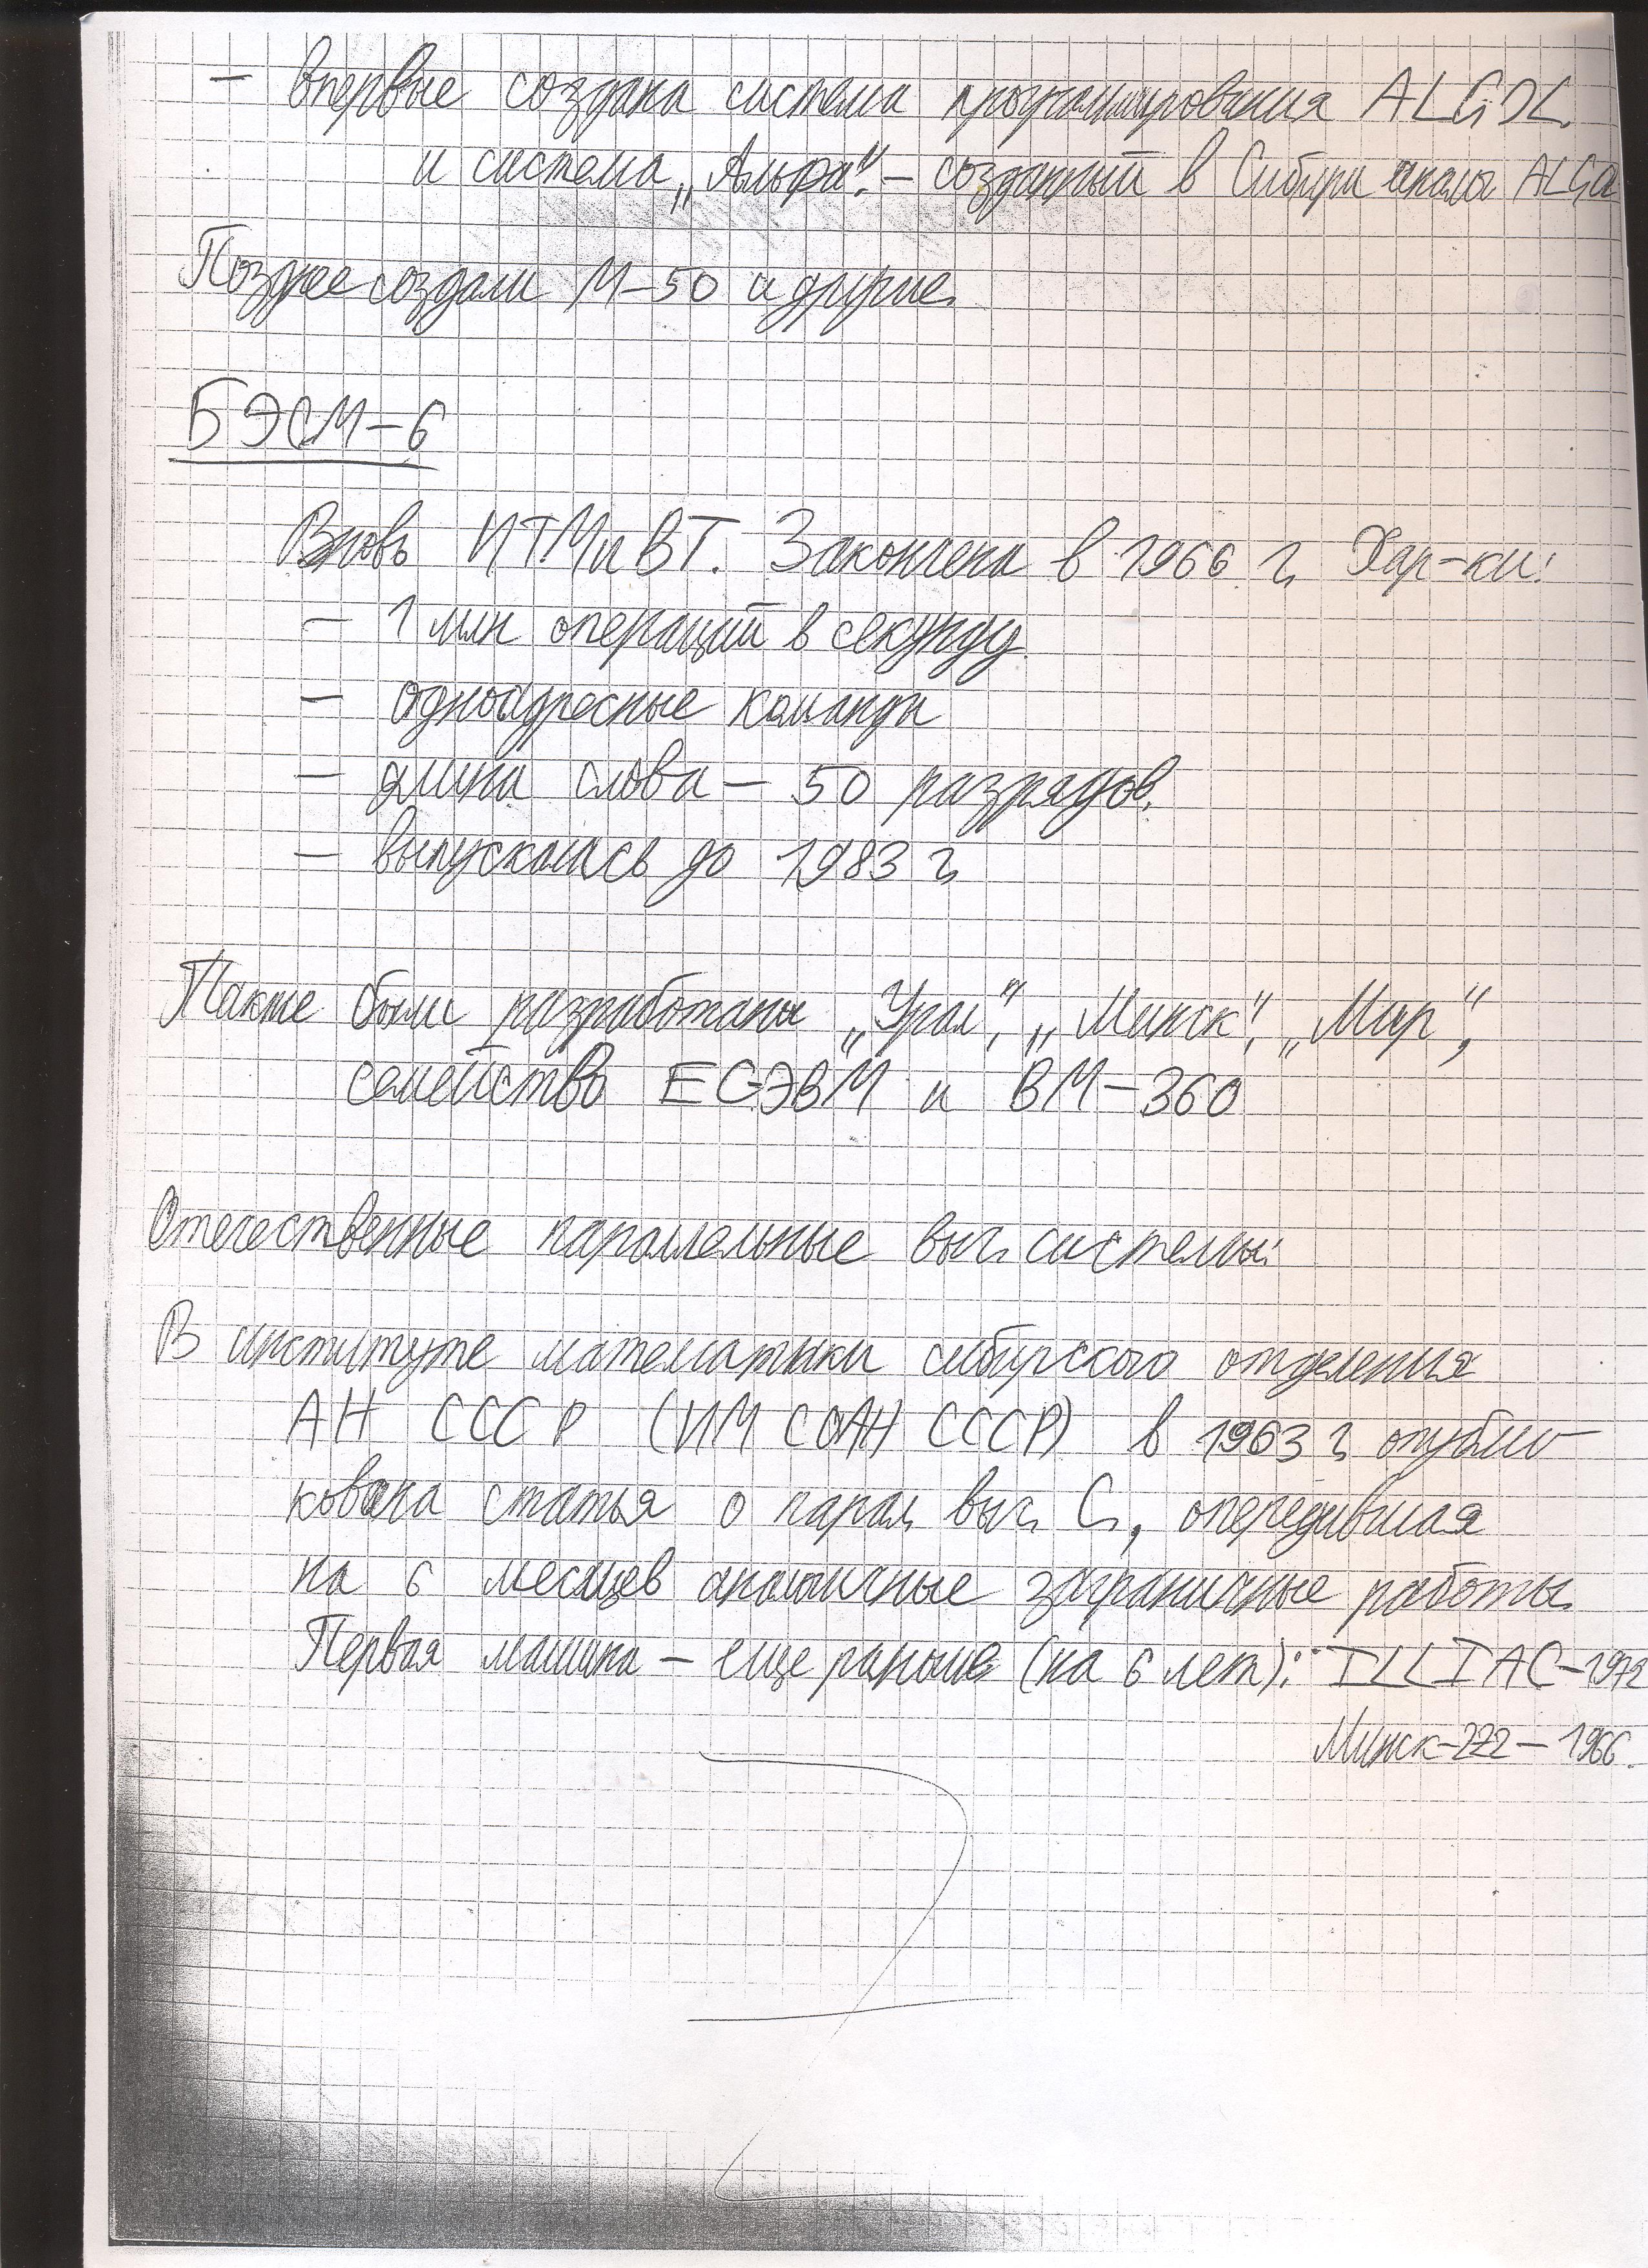 — впервые создана система программирования ALGOL
и система „Альфа“. — созданный в Сибири аналог ALGO
Позднее создали М-50 и другие.
БЭСМ-6
Вновь ИТМиВТ. Закончена в 1966 г. Хар-ки:
— 1 млн операций в секунду
— одноадресные команды
— длина слова — 50 разрядов.
— выпускалась до 1983 г.
Также были разработаны „Урал“, „Минск“, „Мир“,
семейство ЕСЭВМ и ВМ-360
Отечественные параллельные выч. системы:
В институте математики сибирского отделения
АН СССР (ИМ СОАН СССР) в 1963 г. опубли-
кована статья о парал. выч. С., опередившая
на 6 месяцев аналогичные заграничные работы.
Первая машина — еще раньше (на 6 лет): ILLIAC-1972
Минск-222 — 1966.